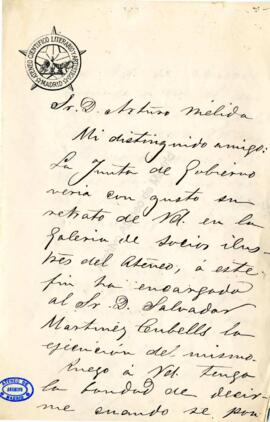 ATENEO CIENTÍFICO LITERARIO Y ARTÍSTICO
MADRID
Sr. D. Arturo Mélida
Mi distinguido amigo:
La Junta de Gobierno
veria con gusto su
retrato de Vd. en la
Galeria de socios ilus-
tres del Ateneo, á este
fin ha encargado
al Sr. D. Salvador
Martinez Cubells la
ejecucion del mismo.
Ruego á Vd. tenga
la bondad de decir-
me cuando se pon
ATENEO DE
MADRID